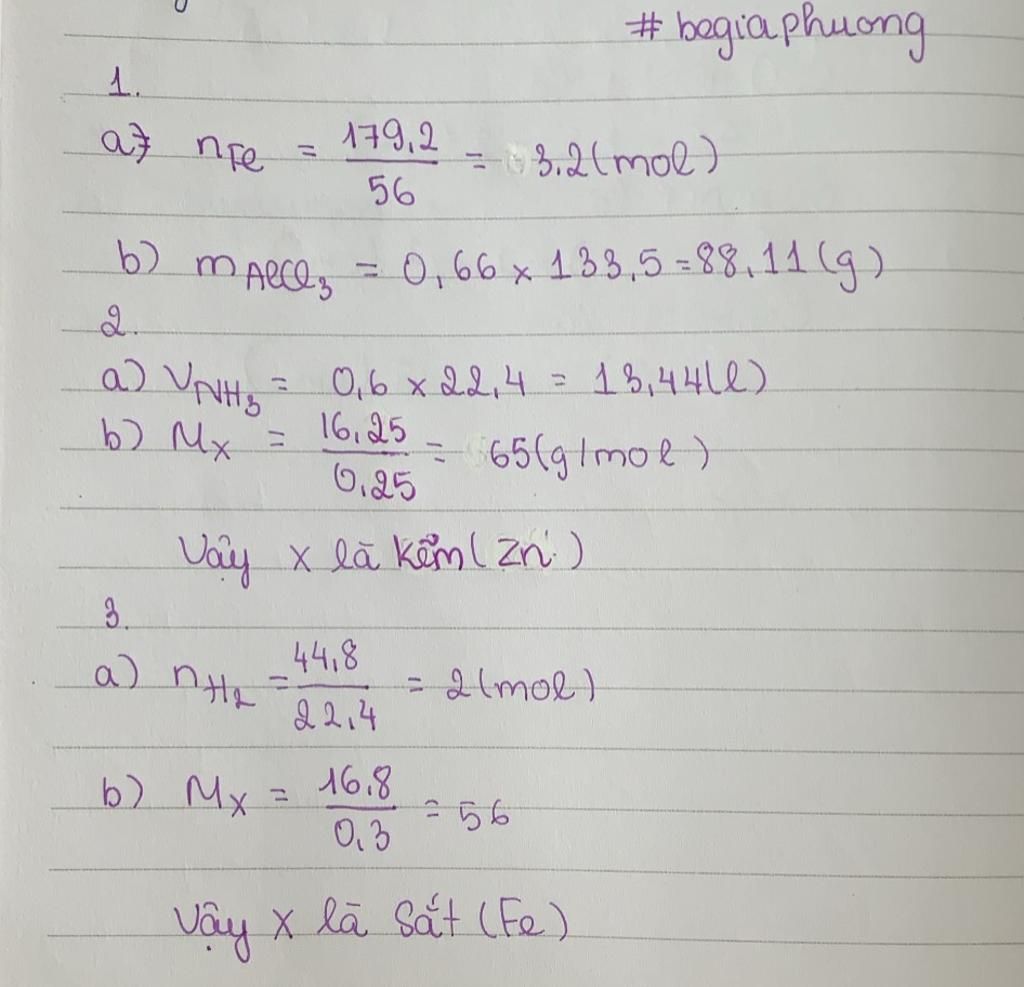 # begiaphuong
1.
a) nFe = 179,2/56 = 3.2 (mol)
b) mAlCl3 = 0,66 x 133,5 = 88,11 (g)
2.
a) VNH3 = 0,6 x 22,4 = 13,44 (l)
b) Mx = 16,25/0,25 = 65 (g/mol)
Vậy x là kẽm (Zn)
3.
a) nH2 = 44,8/22,4 = 2 (mol)
b) Mx = 16.8/0,3 = 56
Vậy x là Sắt (Fe)